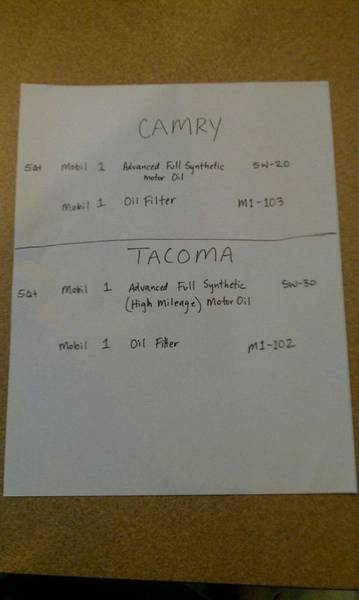 CAMRY
5Qt Mobil 1 Advanced Full Synthetic 5W-20
Motor Oil
Mobil 1 Oil Filter M1-103
TACOMA
5Qt Mobil 1 Advanced Full Synthetic 5W-30
(High Mileage) Motor Oil
Mobil 1 Oil Filter M1-102